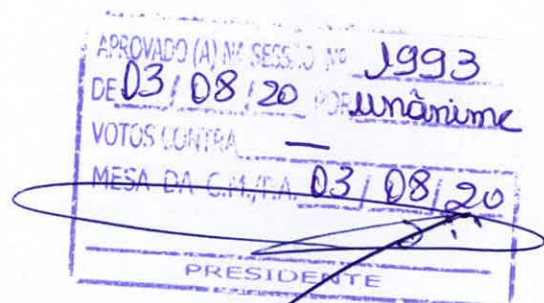 APROVADO (A) NA SESSÃO Nº 1993
DE 03 / 08 / 20 POR unânime
VOTOS CONTRA —
MESA DA C.M./P.A. 03 / 08 / 20
PRESIDENTE